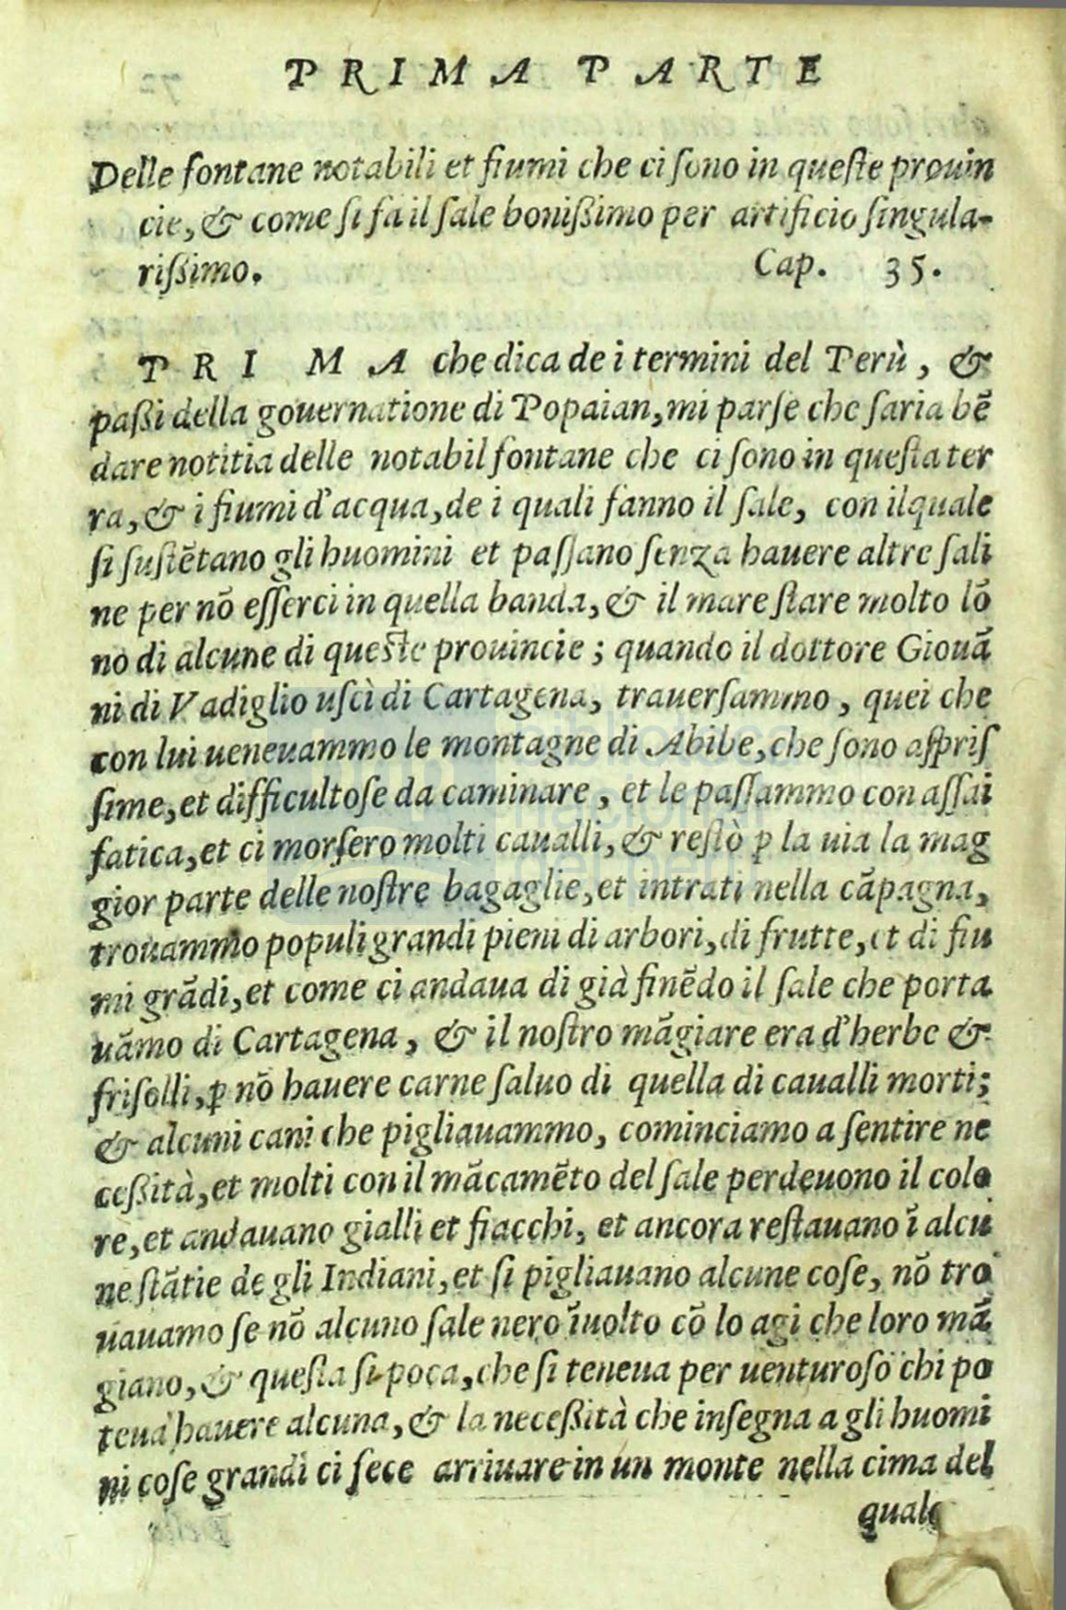 PRIMA PARTE
Delle fontane notabili et fiumi che ci sono in queste prouin
cie, & come si fa il sale bonißimo per artificio singula-
rißimo. Cap. 35.
PRIMA che dica de i termini del Perù, &
paßi della gouernatione di Popaian, mi parse che saria bẽ
dare notitia delle notabil fontane che ci sono in questa ter
ra, & i fiumi d'acqua, de i quali fanno il sale, con ilquale
si sustẽtano gli huomini et passano senza hauere altre sali
ne per nõ esserci in quella banda, & il mare stare molto lõ
no di alcune di queste prouincie; quando il dottore Giouã
ni di Vadiglio uscì di Cartagena, trauersammo, quei che
con lui ueneuammo le montagne di Abibe, che sono aspris
sime, et difficultose da caminare, et le passammo con assai
fatica, et ci morsero molti caualli, & restò ꝑ la uia la mag
gior parte delle nostre bagaglie, et intrati nella cãpagna,
trouammo populi grandi pieni di arbori, di frutte, et di fiu
mi grãdi, et come ci andaua di già finẽdo il sale che porta
uãmo di Cartagena, & il nostro mãgiare era d'herbe &
frisolli, ꝑ nõ hauere carne saluo di quella di caualli morti;
& alcuni cani che pigliauammo, cominciamo a sentire ne
ceßità, et molti con il mãcamẽto del sale perdeuono il colo
re, et andauano gialli et fiacchi, et ancora restauano ĩ alcu
ne stãtie de gli Indiani, et si pigliauano alcune cose, nõ tro
uauamo se nõ alcuno sale nero ĩuolto cõ lo agi che loro mã
giano, & questa si poca, che si teneua per uenturoso chi po
teua hauere alcuna, & la neceßità che insegna a gli huomi
ni cose grandi ci fece arriuare in un monte nella cima del
quale